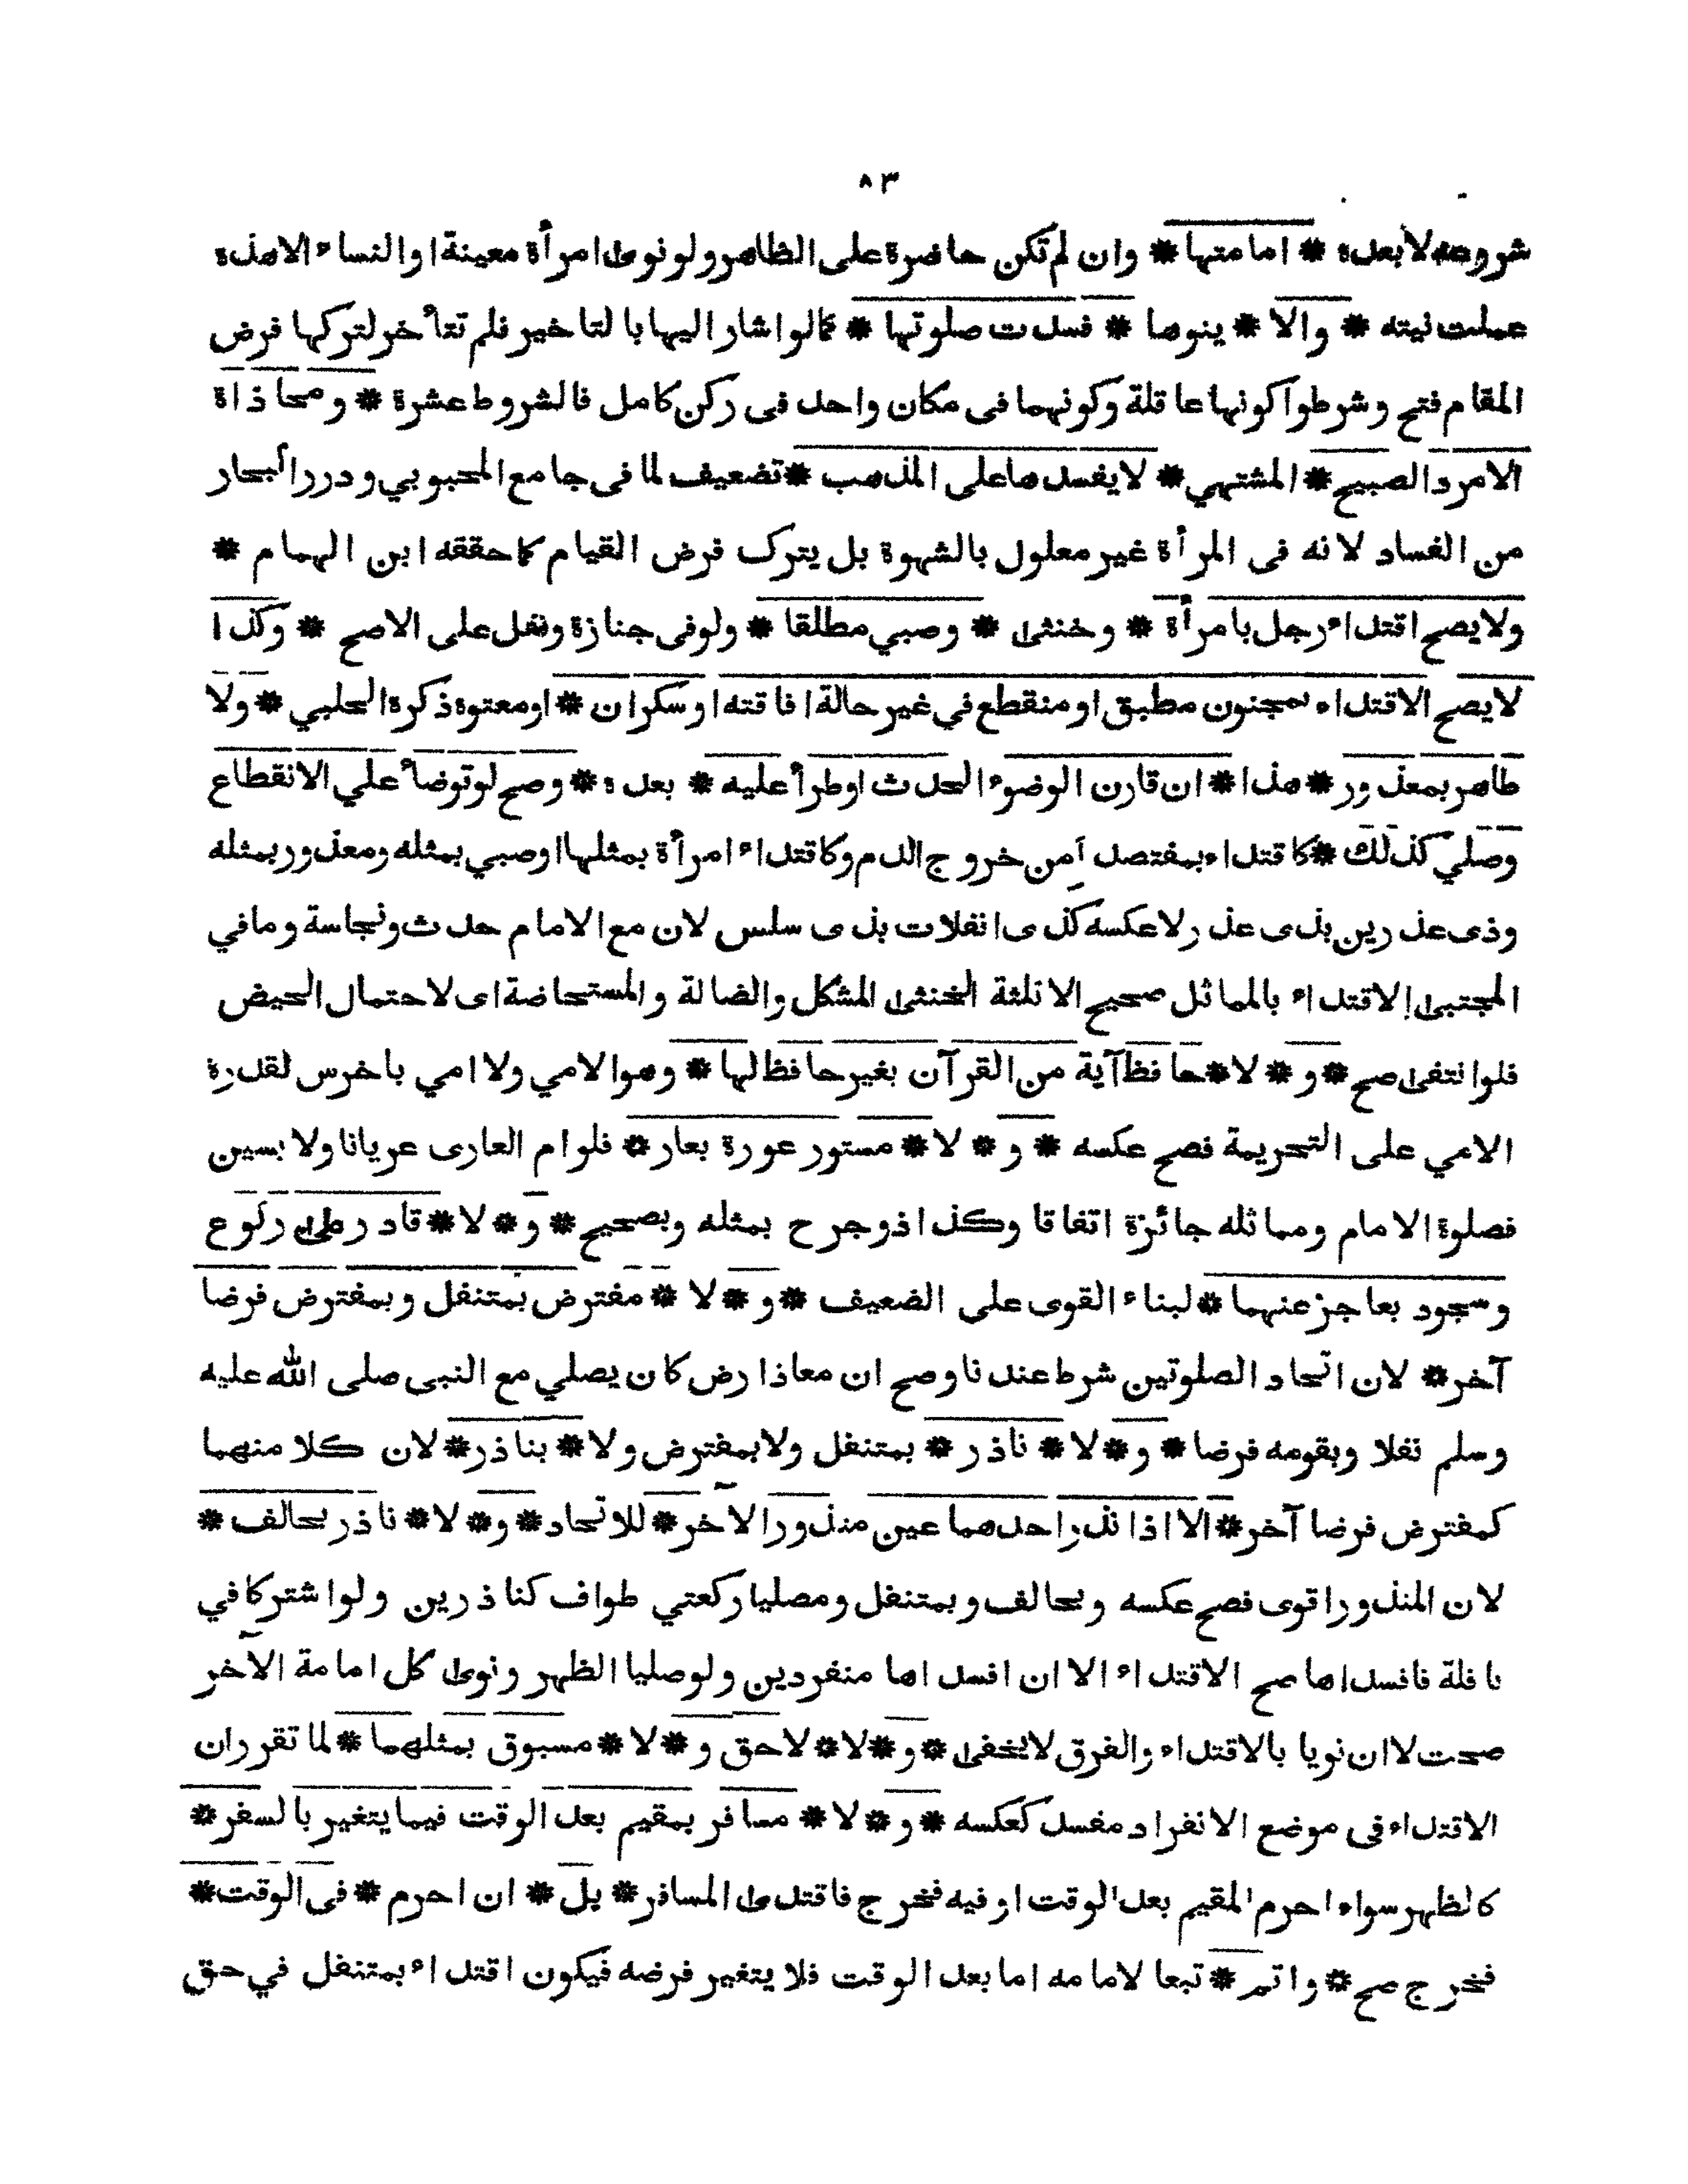 ٨٣
شروعه لا بعده * امامتها * وان لم تكن حاضرة على الظاهر ولو نوى امرأة معينة او النساء الا هذه
عملت نيته * والا * ينوها * فسدت صلوتها * كما لو اشار اليها بالتاخير فلم تتأخر لتركها فرض
المقام فتح وشرطوا كونها عاقلة وكونهما فى مكان واحد فى ركن كامل فالشروط عشرة * ومحاذاة
الامرد الصبيح * المشتهي * لا يفسدها على المذهب * تضعيف لما فى جامع المحبوبي ودرر البحار
من الفساد لانه فى المرأة غير معلول بالشهوة بل يترك فرض القيام كما حققه ابن الهمام *
ولا يصح اقتداء رجل بامرأة * وخنثى * وصبي مطلقا * ولو فى جنازة ونفل على الاصح * وكذا
لا يصح الاقتداء بمجنون مطبق او منقطع في غير حالة افاقته او سكران * او معتوه ذكره الحلبي * ولا
طاهر بمعذور * هذا * ان قارن الوضوء الحدث او طرأ عليه * بعده * وصح لو توضأ علي الانقطاع
وصلي كذلك * كاقتداء بمفتصد امن خروج الدم وكاقتداء امرأة بمثلها او صبي بمثله ومعذور بمثله
وذى عذرين بذى عذر لا عكسه كذى انفلات بذى سلس لان مع الامام حدث ونجاسة وما في
المجتبى الاقتداء بالمماثل صحيح الا ثلثة الخنثى المشكل والضالة والمستحاضة اى لاحتمال الحيض
فلو انتفى صح * و * لا * حافظ آية من القرآن بغير حافظ لها * وهو الامي ولا امي باخرس لقدرة
الامي على التحريمة فصح عكسه * و * لا * مستور عورة بعار * فلو ام العارى عريانا ولابسين
فصلوة الامام ومماثله جائزة اتفاقا وكذا ذو جرح بمثله وبصحيح * و * لا * قادر على ركوع
وسجود بعاجز عنهما * لبناء القوى على الضعيف * و * لا * مفترض بمتنفل وبمفترض فرضا
آخر * لان اتحاد الصلوتين شرط عندنا وصح ان معاذا رض كان يصلي مع النبى صلى الله عليه
وسلم نفلا وبقومه فرضا * و * لا * ناذر * بمتنفل ولا بمفترض ولا * بناذر * لان كلا منهما
كمفترض فرضا آخر * الا اذا نذر احدهما عين منذور الآخر * للاتحاد * و * لا * ناذر بحالف *
لان المنذور اقوى فصح عكسه وبحالف وبمتنفل ومصليا ركعتي طواف كناذرين ولو اشتركا في
نافلة فافسداها صح الاقتداء الا ان افسداها منفردين ولو صليا الظهر ونوى كل امامة الآخر
صحت لا ان نويا بالاقتداء والفرق لا يخفى * و * لا * لاحق و * لا * مسبوق بمثلهما * لما تقرر ان
الاقتداء فى موضع الانفراد مفسد كعكسه * و * لا * مسافر بمقيم بعد الوقت فيما يتغير بالسفر *
كالظهر سواء احرم المقيم بعد الوقت او فيه فخرج فاقتدى المسافر * بل * ان احرم * فى الوقت *
فخرج صح * واتم * تبعا لامامه اما بعد الوقت فلا يتغير فرضه فيكون اقتداء بمتنفل في حق